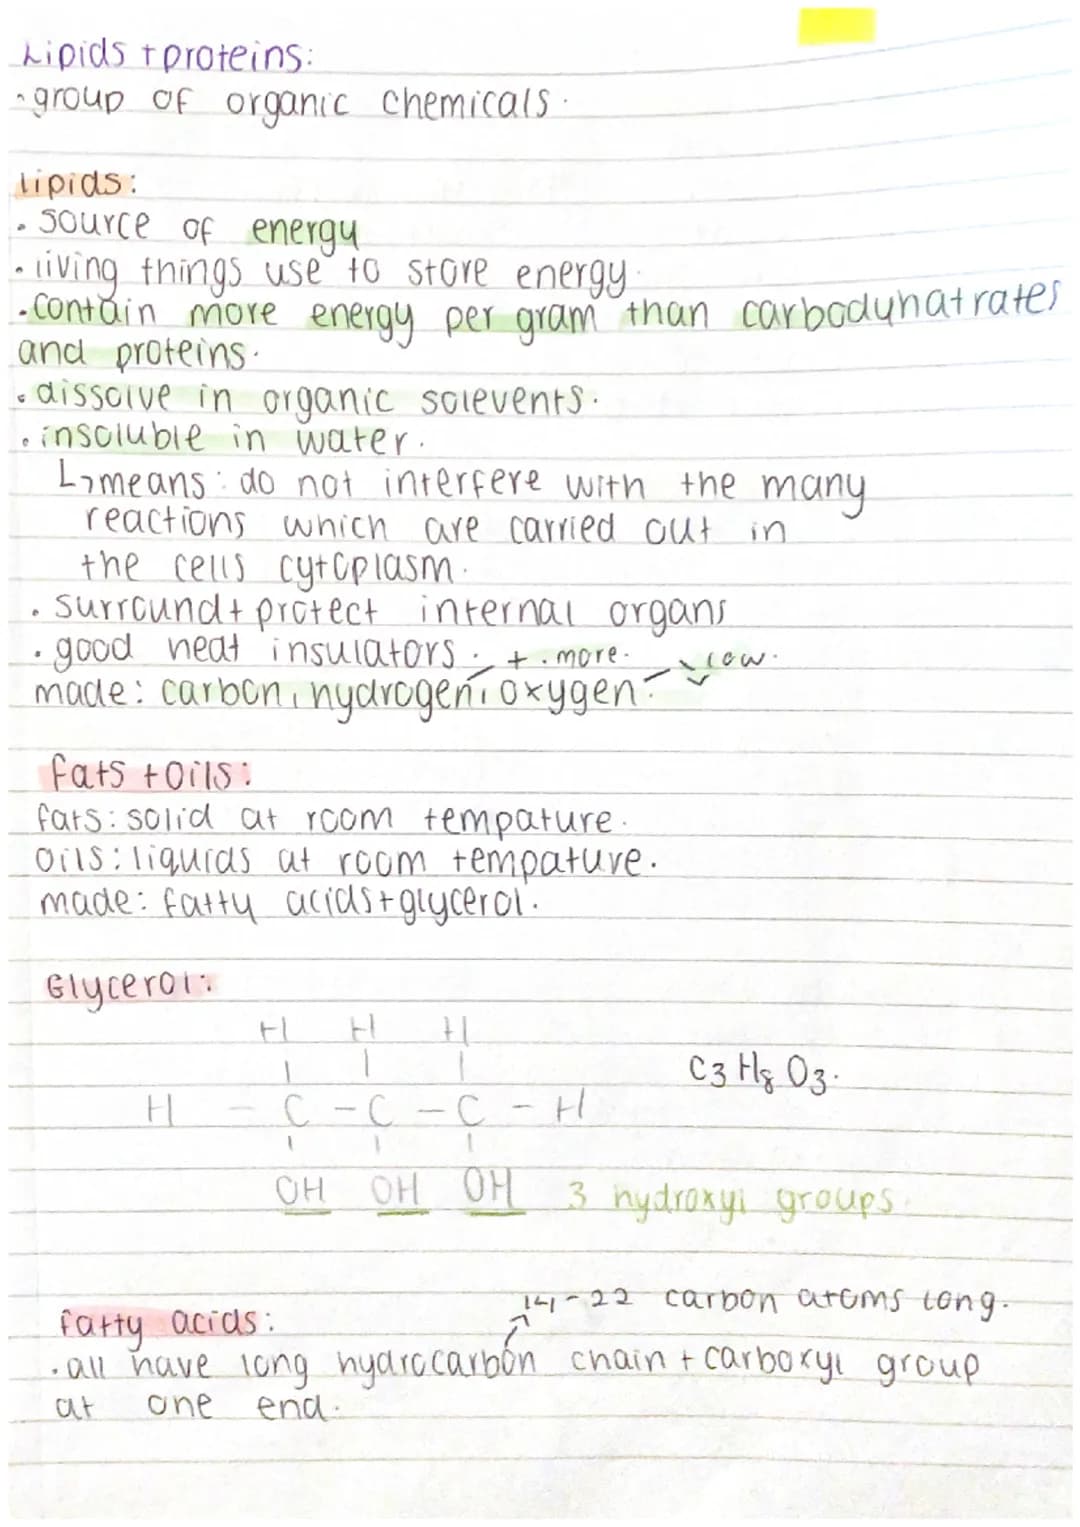 Lipids + proteins:
- group of organic chemicals.
lipids:
• source of energy
• living things use to store energy.
• contain more energy per gram than carbodynatrates
and proteins.
• dissolve in organic solevents.
• insoluble in water.
↳ means: do not interfere with the many
reactions which are carried out in
the cells cytoplasm.
• surround + protect internal organs
• good heat insulators. + . more. low.
made: carbon, hydrogen, oxygen.
fats + oils:
fats: solid at room tempature.
oils: liquids at room tempature.
made: fatty acids + glycerol.
Glycerol:
H H H
C3 H8 O3.
H - C - C - C - H
OH OH OH 3 hydroxyl groups.
14-22 carbon atoms long.
fatty acids:
• all have long hydrocarbon chain + carboxyl group
at one end.